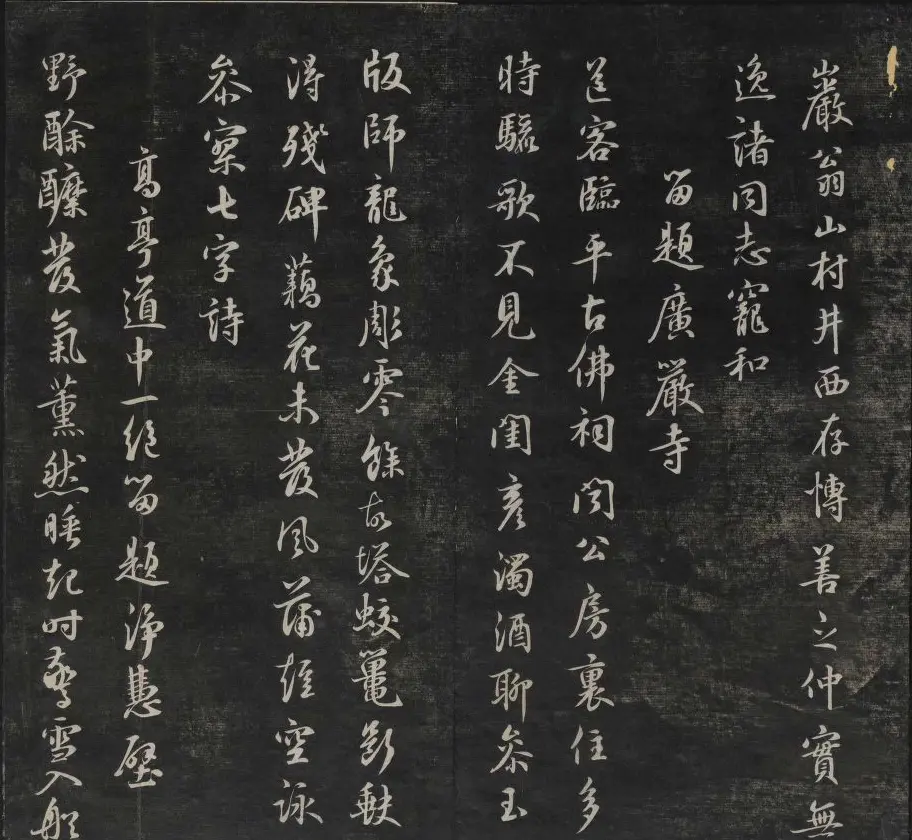 巖翁山村井西存博善之仲實無
逸諸同志寵和
留題廣嚴寺
送客臨平古佛祠公房裏住多
時驪歌不見金閨彥濁酒聊參玉
版師龍象彫零餘故塔蛟鼉斷軼
得殘碑藕花未發風蒲短空詠
參寥七字詩
高亭道中一絕留題淨慧壁
野酴醿發氣薰然睡起時驚雪入船